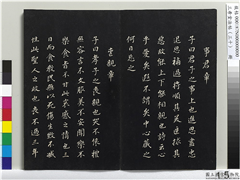 事君章
子曰君子之事上也進思盡忠
退思補過將順其美匡救其
惡故能上下相親也詩云心
乎愛矣遐不謂矣中心藏之
何日忘之
喪親章
子曰孝子之喪親也哭不偯禮
無容言不文服美不安聞樂不
樂食旨不甘此哀戚之情也三
日而食教民無以死傷生毀不滅
性此聖人之政也喪不過三年